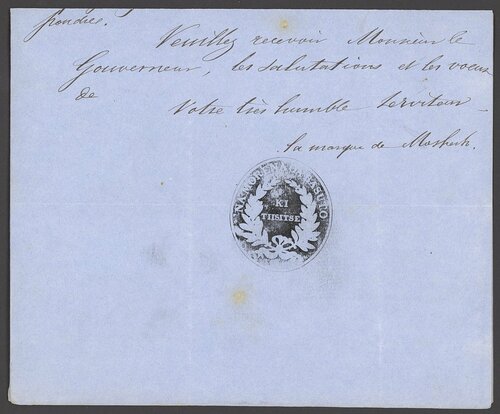 Veuillez recevoir Monsieur le
Gouverneur, les salutations et les voeux
de
Votre très humble serviteur
la marque de Moshesh.
KI
TIISITSE